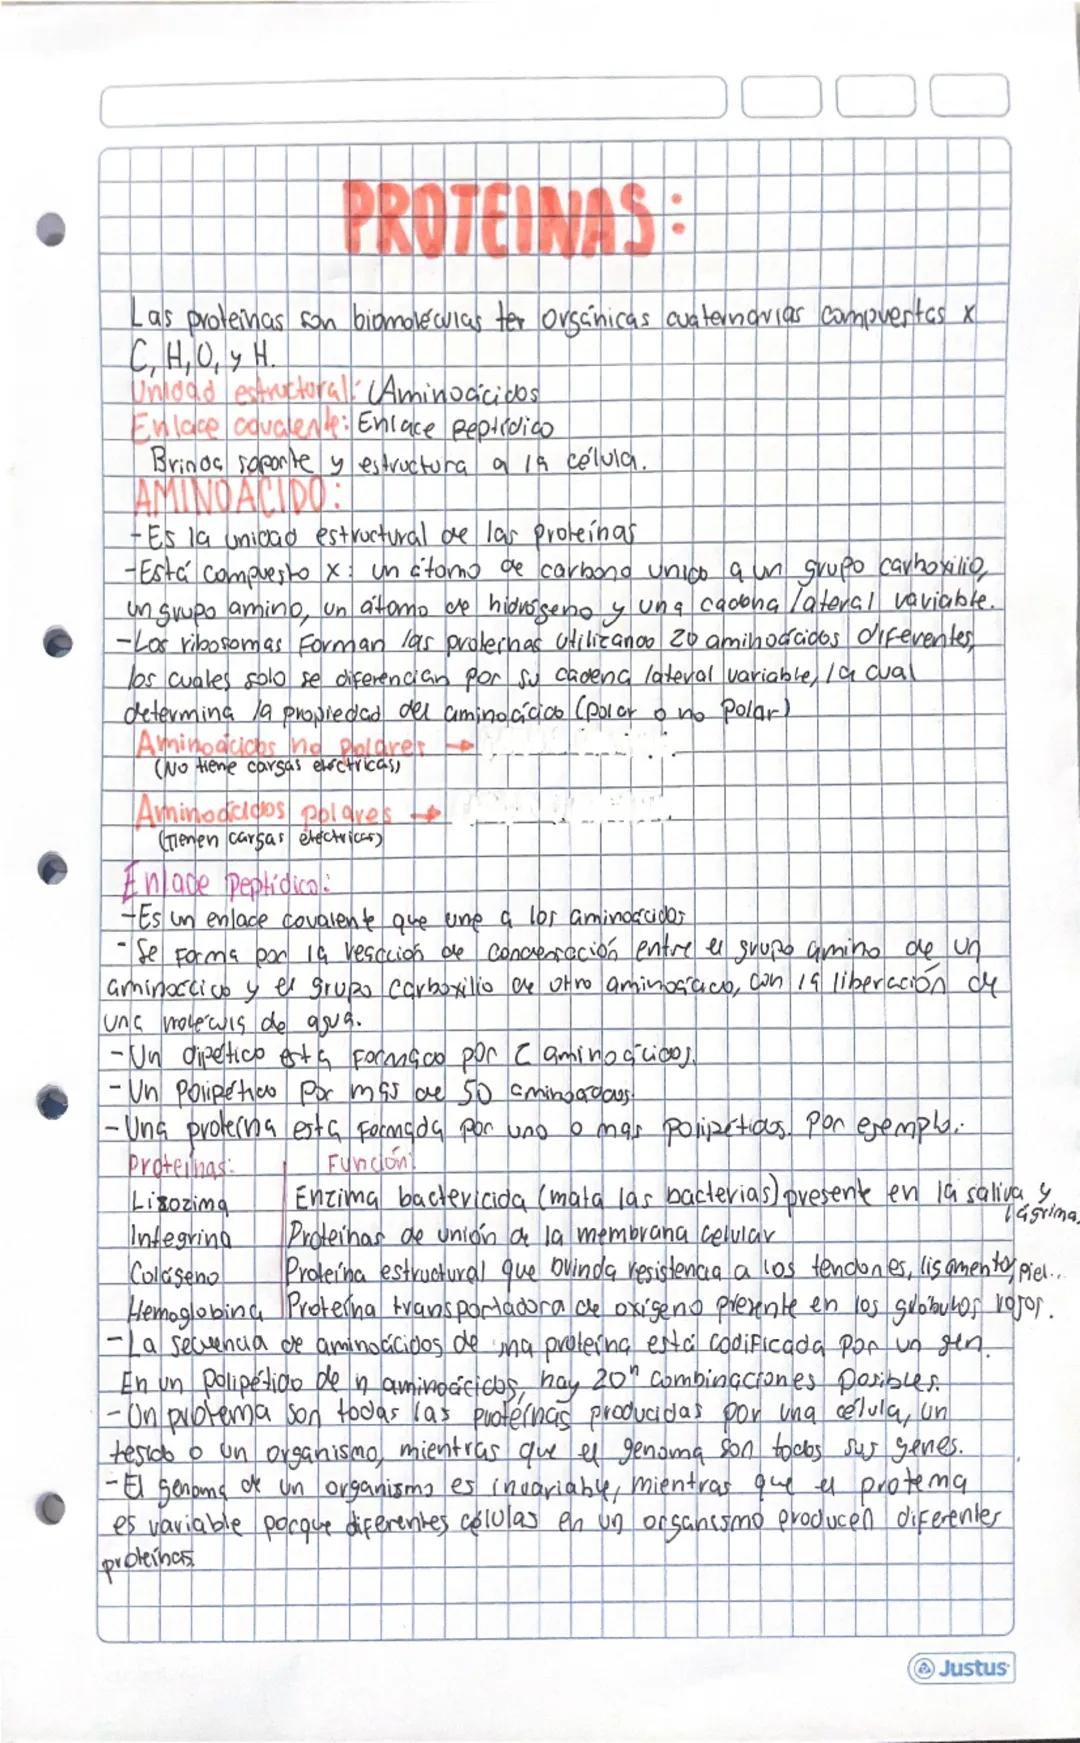 PROTEINAS:
Las proteínas son biomoléculas ter orgánicas cuaternarias compuestas x
C, H, O, y H.
Unidad estructural: (Aminoácidos
Enlace covalente: Enlace peptídico
Brinda soporte y estructura a la célula.
AMINOACIDO:
-Es la unidad estructural de las proteínas
-Está compuesto x: un átomo de carbono unido a un grupo carboxilio,
un grupo amino, un átomo de hidrógeno y una cadena lateral variable.
-Los ribosomas Forman las proteínas utilizando 20 aminoácidos diferentes,
los cuales solo se diferencian por su cadena lateral variable, la cual
determina la propiedad del aminoácido (polar o no polar)
Aminoácidos no polares →
(No tiene cargas eléctricas)
Aminoácidos polares →
(Tienen cargas eléctricas)
Enlace Peptídico:
-Es un enlace covalente que une a los aminoácidos
-Se Forma por la reacción de condensación entre el grupo amino de un
aminoácido y el grupo carboxilio de otro aminoácido, con la liberación de
una molécula de agua.
-Un dipético está Formado por 2 aminoácidos.
-Un Polipético por más de 50 aminoácidos.
-Una proteína está formada por uno o más polipétidos. Por ejemplo:
Proteínas: Función:
Lizozima Enzima bactericida (mata las bacterias) presente en la saliva y
lágrima.
Integrina Proteínas de unión de la membrana celular
Colágeno Proteína estructural que brinda resistencia a los tendones, ligamentos, piel...
Hemoglobina Proteína transportadora de oxígeno presente en los glóbulos rojos.
-La secuencia de aminoácidos de una proteína está codificada por un gen.
En un polipétido de n aminoácidos, hay 20ⁿ combinaciones posibles.
-Un protema son todas las proteínas producidas por una célula, un
tejido o un organismo, mientras que el genoma son todos sus genes.
-El genoma de un organismo es invariable, mientras que el protema
es variable porque diferentes células en un organismo producen diferentes
proteínas
Justus